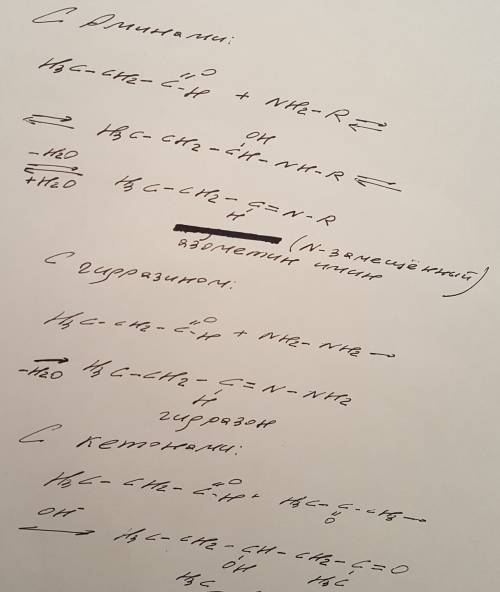 С Аминами:
O
H3C-CH2-C-H + NH2-R ⇌
OH
⇌ H3C-CH2-CH-NH-R ⇌
-H2O
+H2O
H3C-CH2-C=N-R
H
азометин (N-замещённый имин)
С гидразином:
O
H3C-CH2-C-H + NH2-NH2 →
→
-H2O
H3C-CH2-C=N-NH2
H
гидразон
С кетонами:
O
H3C-CH2-C-H + H3C-C-CH3 →
O
OH-
H3C-CH2-CH-CH2-C=O
OH
H3C
H3C